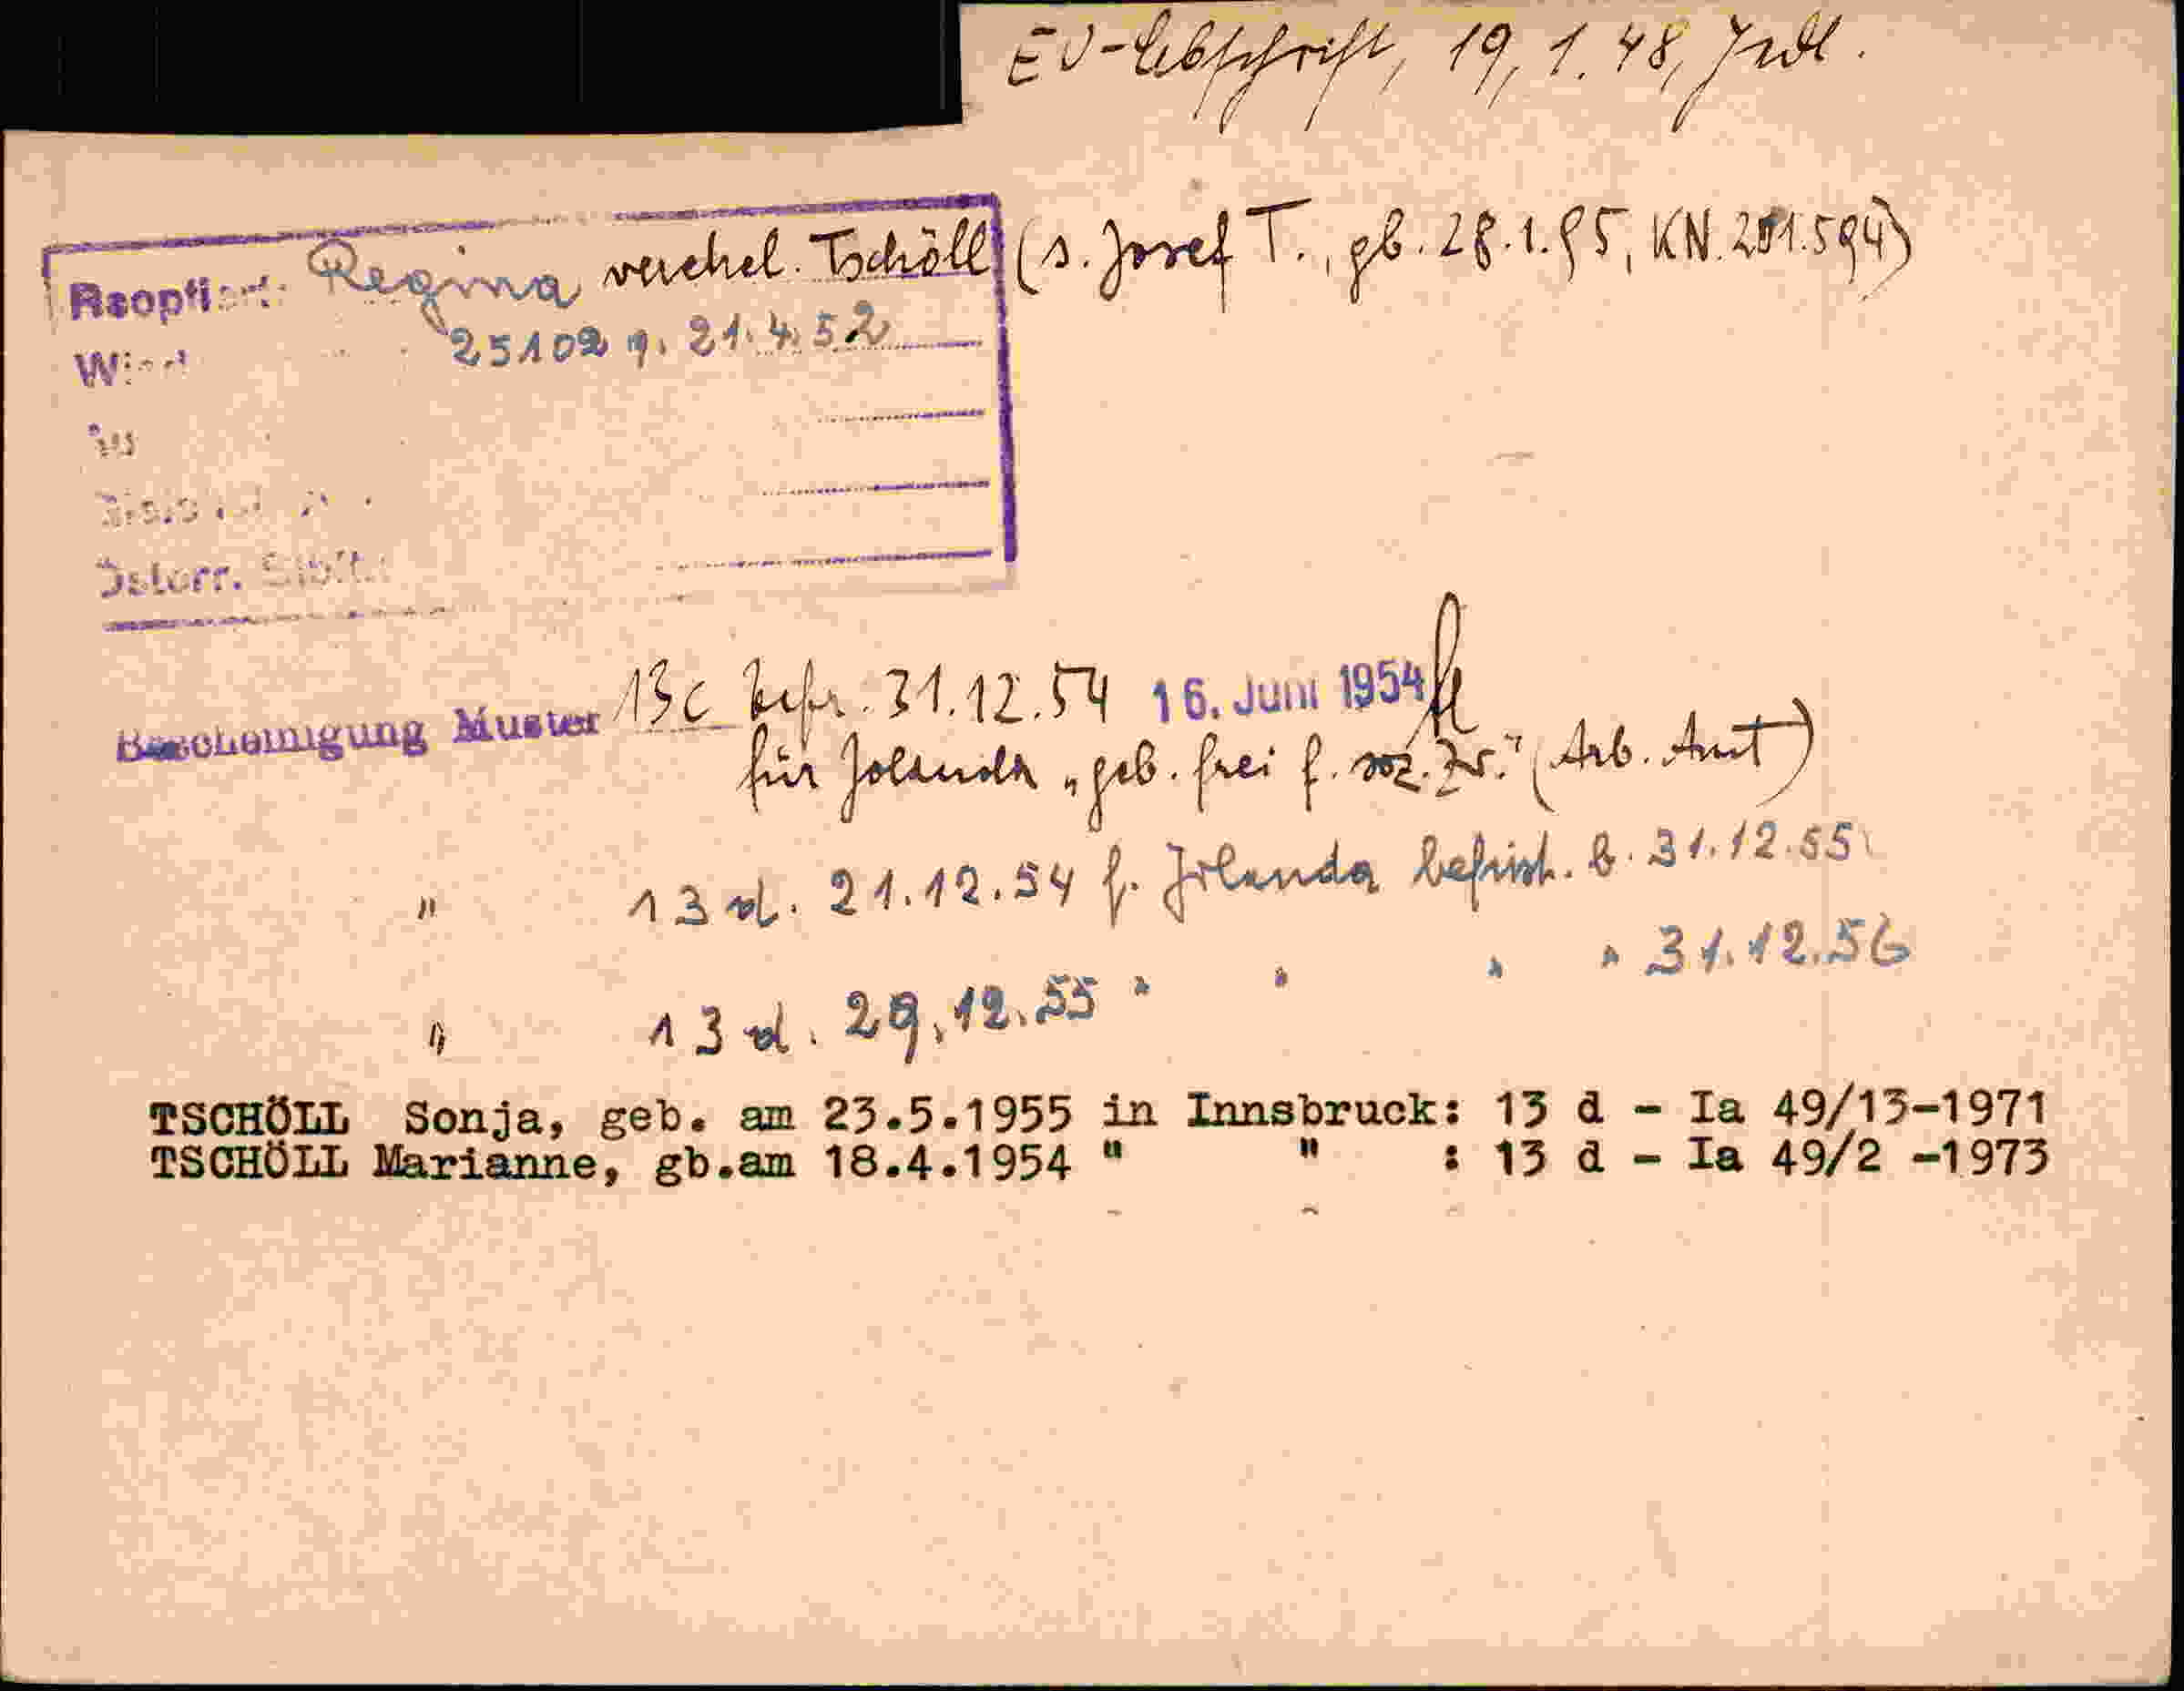 EV-Abschrift, 19.1.48,
Reoptiert: Regina verehel. Tschöll (s. Josef T., gb. 28.1.95, KN. 251.594)
25102 v. 21.4.52
Österr.
Bescheinigung Muster 13c befr. 31.12.54 16. Juni 1954
für Jolanda „geb. frei f. soz. Zw." (Arb. Amt)
" 13 d. 21.12.54 f. Jolanda befrist. b. 31.12.55
" 13 d. 29.12.55 " " " " 31.12.56
TSCHÖLL Sonja, geb. am 23.5.1955 in Innsbruck: 13 d - Ia 49/13-1971
TSCHÖLL Marianne, gb.am 18.4.1954 " " : 13 d - Ia 49/2 -1973